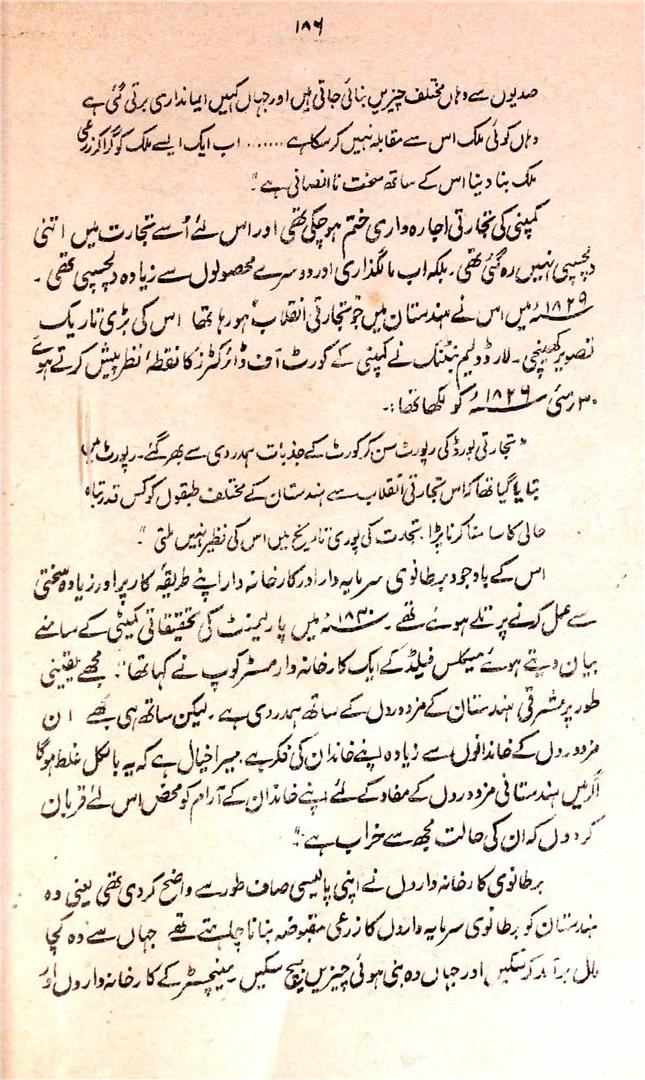 ۱۸۶
صدیوں سے وہاں مختلف چیزیں بنائی جاتی ہیں اور جہاں کہیں ایمانداری برتی گئی ہے
وہاں کوئی ملک اس سے مقابلہ نہیں کر سکا ہے....... اب ایک ایسے ملک کو گرا کر زرعی
ملک بنا دینا اس کے ساتھ سخت نا انصافی ہے"۔
کمپنی کی تجارتی اجارہ داری ختم ہو چکی تھی اور اس لئے اُسے تجارت میں اتنی
دلچسپی نہیں رہ گئی تھی۔ بلکہ اب مالگذاری اور دوسرے محصولوں سے زیادہ دلچسپی تھی۔
۱۸۲۹ء میں اس نے ہندستان میں جو تجارتی انقلاب ہو رہا تھا اس کی بڑی تاریک
تصویر کھینچی۔ لارڈ ولیم بنٹنک نے کمپنی کے کورٹ آف ڈائرکٹرز کا نقطۂ نظر پیش کرتے ہوئے
۳۰ مئی ۱۸۲۶ء کو لکھا تھا:۔
"تجارتی بورڈ کی رپورٹ سن کر کورٹ کے جذبات ہمدردی سے بھر گئے۔ رپورٹ میں
بتایا گیا تھا کہ اس تجارتی انقلاب سے ہندستان کے مختلف طبقوں کو کس قدر تباہ
حالی کا سامنا کرنا پڑا۔ تجارت کی پوری تاریخ میں اس کی نظیر نہیں ملتی"۔
اس کے باوجود برطانوی سرمایہ دار اور کارخانہ دار اپنے طریقۂ کار پر اور زیادہ سختی
سے عمل کرنے پر تلے ہوئے تھے۔ ۱۸۳۰ء میں پارلیمنٹ کی تحقیقاتی کمیٹی کے سامنے
بیان دیتے ہوئے میکلس فیلڈ کے ایک کارخانہ دار مسٹر کوپ نے کہا تھا"۔ مجھے یقینی
طور پر مشرقی ہندستان کے مزدوروں کے ساتھ ہمدردی ہے۔ لیکن ساتھ ہی مجھے ان
مزدوروں کے خاندانوں سے زیادہ اپنے خاندان کی فکر ہے۔ میرا خیال ہے کہ یہ بالکل غلط ہوگا
اگر میں ہندستانی مزدوروں کے مفاد کے لئے اپنے خاندان کے آرام کو محض اس لئے قربان
کر دوں کہ ان کی حالت مجھ سے خراب ہے"۔
برطانوی کارخانہ داروں نے اپنی پالیسی صاف طور سے واضح کر دی تھی یعنی وہ
ہندستان کو برطانوی سرمایہ داروں کا زرعی مقبوضہ بنانا چاہتے تھے جہاں سے وہ کچا
مال برآمد کر سکیں اور جہاں وہ بنی ہوئی چیزیں بیچ سکیں۔ مینچسٹر کے کارخانہ داروں اور